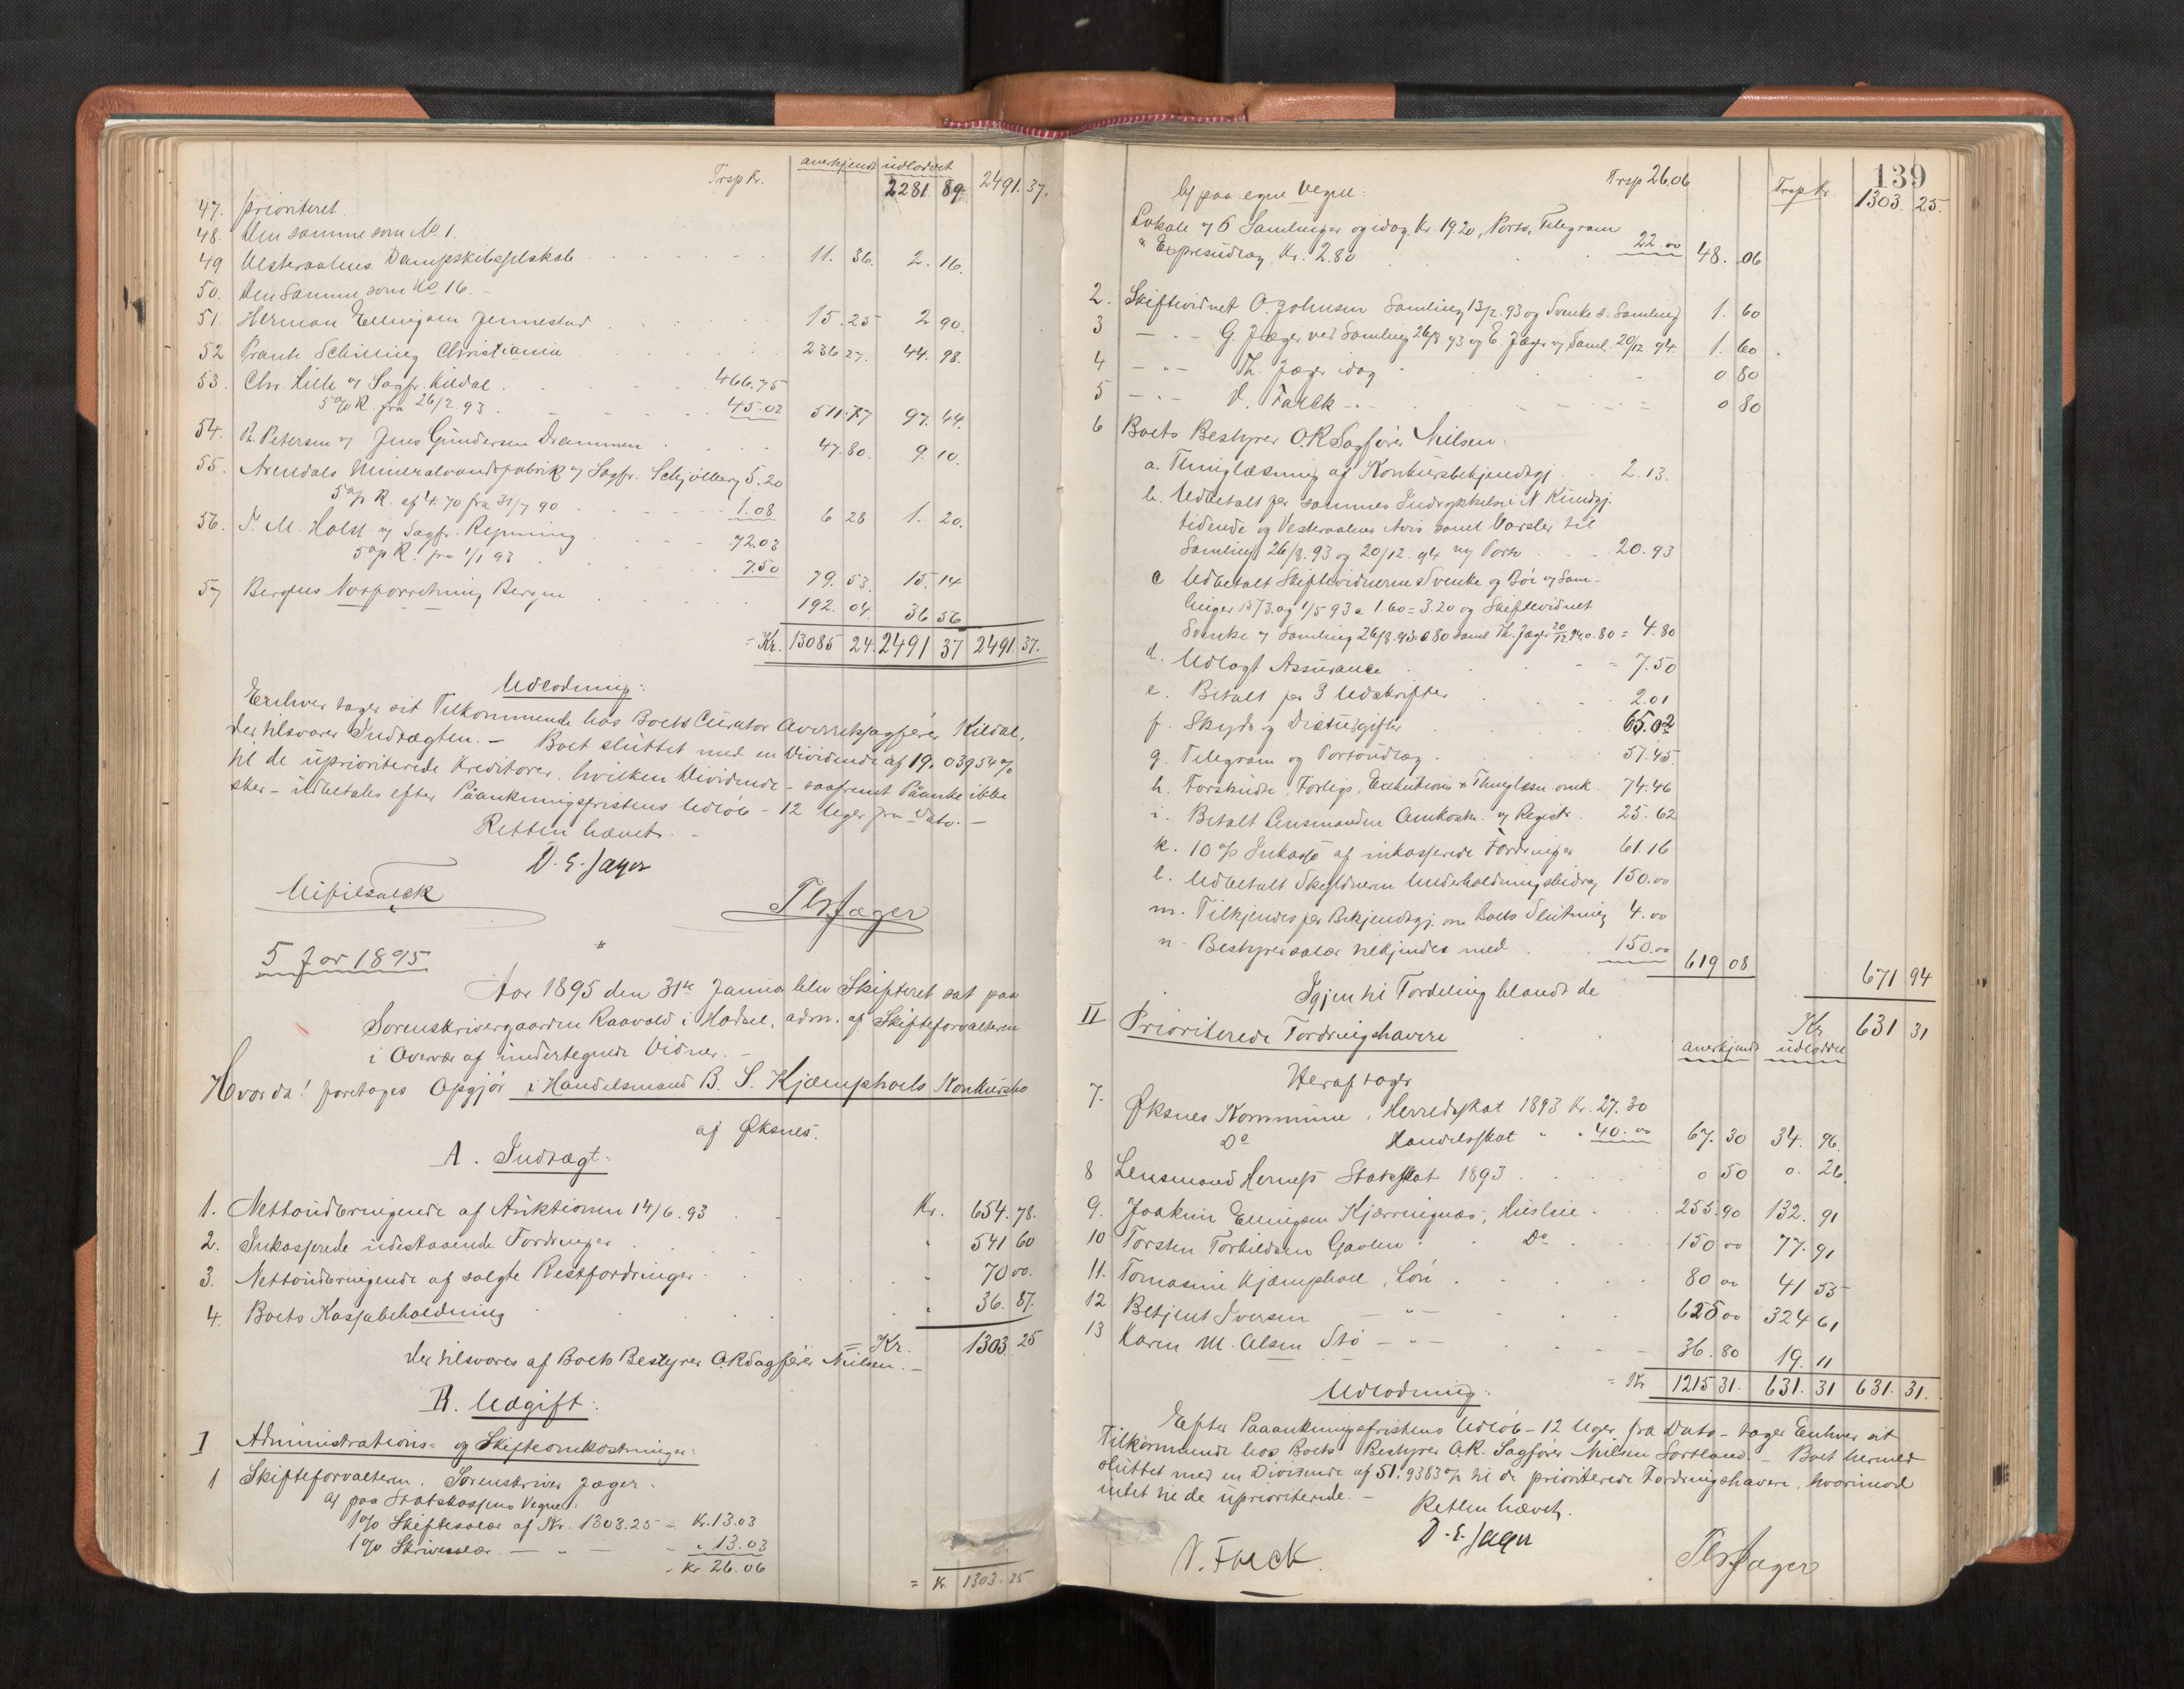 Trsp Kr. anerkjendt udloddet
2281 89 2491. 37.
47. prioriteret.
48. Den samme som No 1.
49 Vesteraalens Dampskibsselskab 11. 36. 2. 16.
50. Den samme som No 16. -
51. Herman Ellingsen Jennestad 15. 25 2 90.
52 Frantz Schilling Christiania 236 27. 44. 98.
53. Chr. Lille v/ Sagfr. Kildal 466.75
5 % R. fra 26/2 93. 45.02 511.77 97. 44.
54. P. Petersen v/ Jens Gundersen Drammen 47. 80. 9. 10.
55. Arendals Mineralvandsfabrik v/ Sagfr. Schjölberg 5.20
5 % R. af 4.70 fra 31/7 90 1.08 6 28 1. 20.
56. T. M. Holst v/ Sagfr. Repning 72.03
5 % R. fra 1/1 93 7.50 79. 53. 15. 14
57 Bergens Notforretning Bergen 192. 04. 36 56
= Kr. 13085 24. 2491 37 2491. 37.
Udlodning:
Enhver tager sit Tilkommende hos Boets Curator Overretssagfører Kildal,
der tilsvarer Indtægten. - Boet sluttet med en Dividende af 19.03954 %
til de uprioriterede Kreditorer, hvilken Dividende - saafremt Paaanke ikke
sker - udbetales efter Paaankningsfristens Udløb - 12 Uger fra Dato. -
Retten hævet. -
D. E. Jæger
Ths Jæger
5 Jor 1895
Aar 1895 den 31te Januar blev Skifteret sat paa
Sorenskrivergaarden Raavold i Hadsel, adm. af Skifteforvalteren
i Overvær af undertegnede Vidner. -
Hvorda! foretoges Opgjør i Handelsmand B. S. Kjæmphoels Konkursbo
af Øksnes.
A. Indtægt:
1. Nettoudbringende af Auktionen 14/6.93 Kr. 654. 78.
2. Inkasserede udestaaende Fordringer " 541 60
3. Nettoudbringende af solgte Restfordringer " 70 00.
4. Boets Kassabeholdning " 36. 87.
= Kr. 1303 25
der tilsvares af Boets Bestyrer O.R.Sagfører Nilsen. -
B. Udgift:
I Administrations= og Skifteomkostninger:
1 Skifteforvalteren, Sorenskriver Jæger.
a) paa Statskassens Vegne:
1 % Skiftesalær af Kr. 1303.25 = Kr. 13.03
1 % Skriversalær - " - " 13.03
- Kr 26.06
= Kr. 1303. 25
139
Trsp 26.06 Trsp Kr. 1303. 25.
b) paa egne Vegne:
Lokale v/ 6 Samlinger og idag Kr. 19.20, Porto, Telegram
& Expresudlæg Kr. 2.80 22.00 48. 06
2. Skiftevidnet O. Johnsen Samling 13/2.93 og Svenke s. Samling 1. 60
3 - " - G. Jæger ved Samling 26/8 93 og E. Jæger v/ Saml. 20/12 94. 1. 60.
4 - " - Th. Jæger idag 0 80
5 - " - V. Falck - " - 0 80
6 Boets Bestyrer O.R Sagfører Nilsen:
a. Thinglæsning af Konkursbekjendtgj. 2.13.
b. Udbetalt for sammes Indrykkelse i N. Kundgj.
tidende og Vesteraalens Avis samt Varsler til
Samling 26/8.93 og 20/12.94 m/ Porto 20.93
c Udbetalt Skiftevidnerne Svenke og Böe v/ Sam-
linger 15/3. og 1/5 93 a 1.60 = 3.20 og Skiftevidnet
Svenke v/ Samling 26/8.93. 0.80 samt Th. Jæger 20/12 94 0.80 = 4.80
d. Udlagt Assurance 7.50
e. Betalt for 3 Udskrifter 2.01
f. Skyds og Diætudgifter 65.02
g. Telegram og Portoudlæg 51.45.
h. Forskudte Forligs, Exekutions & Thinglæsn. omk. 74.46
i. Betalt Lensmanden Omkostn. v/ Registr. 25.62
k. 10 % Inkasso af inkasserede Fordringer 61.16
l. Udbetalt Skyldneren Underholdningsbidrag 150.00
m. Tilkjendes for Bekjendtgj. om Boets Slutning 4.00
n. Bestyrersalær tilkjendes med 150.00 619 08 671 94
Igjen til Fordeling blandt de Kr. 631 31
II Prioriterede Fordringshavere anerkjendt udloddet
Heraf tager
7. Øksnes Kommune, Herredsskat 1893 Kr. 27.30
Do Handelsskat " " 40.00 67. 30 34. 96.
8 Lensmand Hernæs Statsskat 1893 0 50 0. 26.
9. Joakim Ellingsen Kjærringnæs, Husleie 255.90 132. 91
10 Torsten Torkildsen Gavlen Do 150 00 77. 91
11. Tomasine Kjæmphoel, Løn 80 00 41 55
12 Betjent Iversen - " - 625 00 324 61
13 Karen M. Olsen Stø - " - 36. 80 19. 11
= Kr 1215 31. 631. 31 631. 31.
Udlodning:
Efter Paaankningsfristens Udløb - 12 Uger fra Dato - tager Enhver sit
Tilkommende hos Boets Bestyrer O.R. Sagfører Nilsen Sortland. - Boet hermed
sluttet med en Dividende af 51.9383 % til de prioriterede Fordringshavere, hvorimod
intet til de uprioriterede. -
Retten hævet.
D. E. Jæger
V. Falck.
Ths Jæger